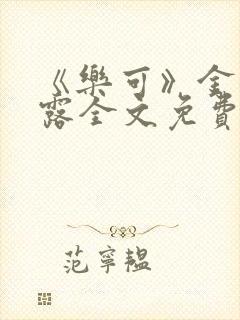 《樂可》金
露全文免費
范寧韞